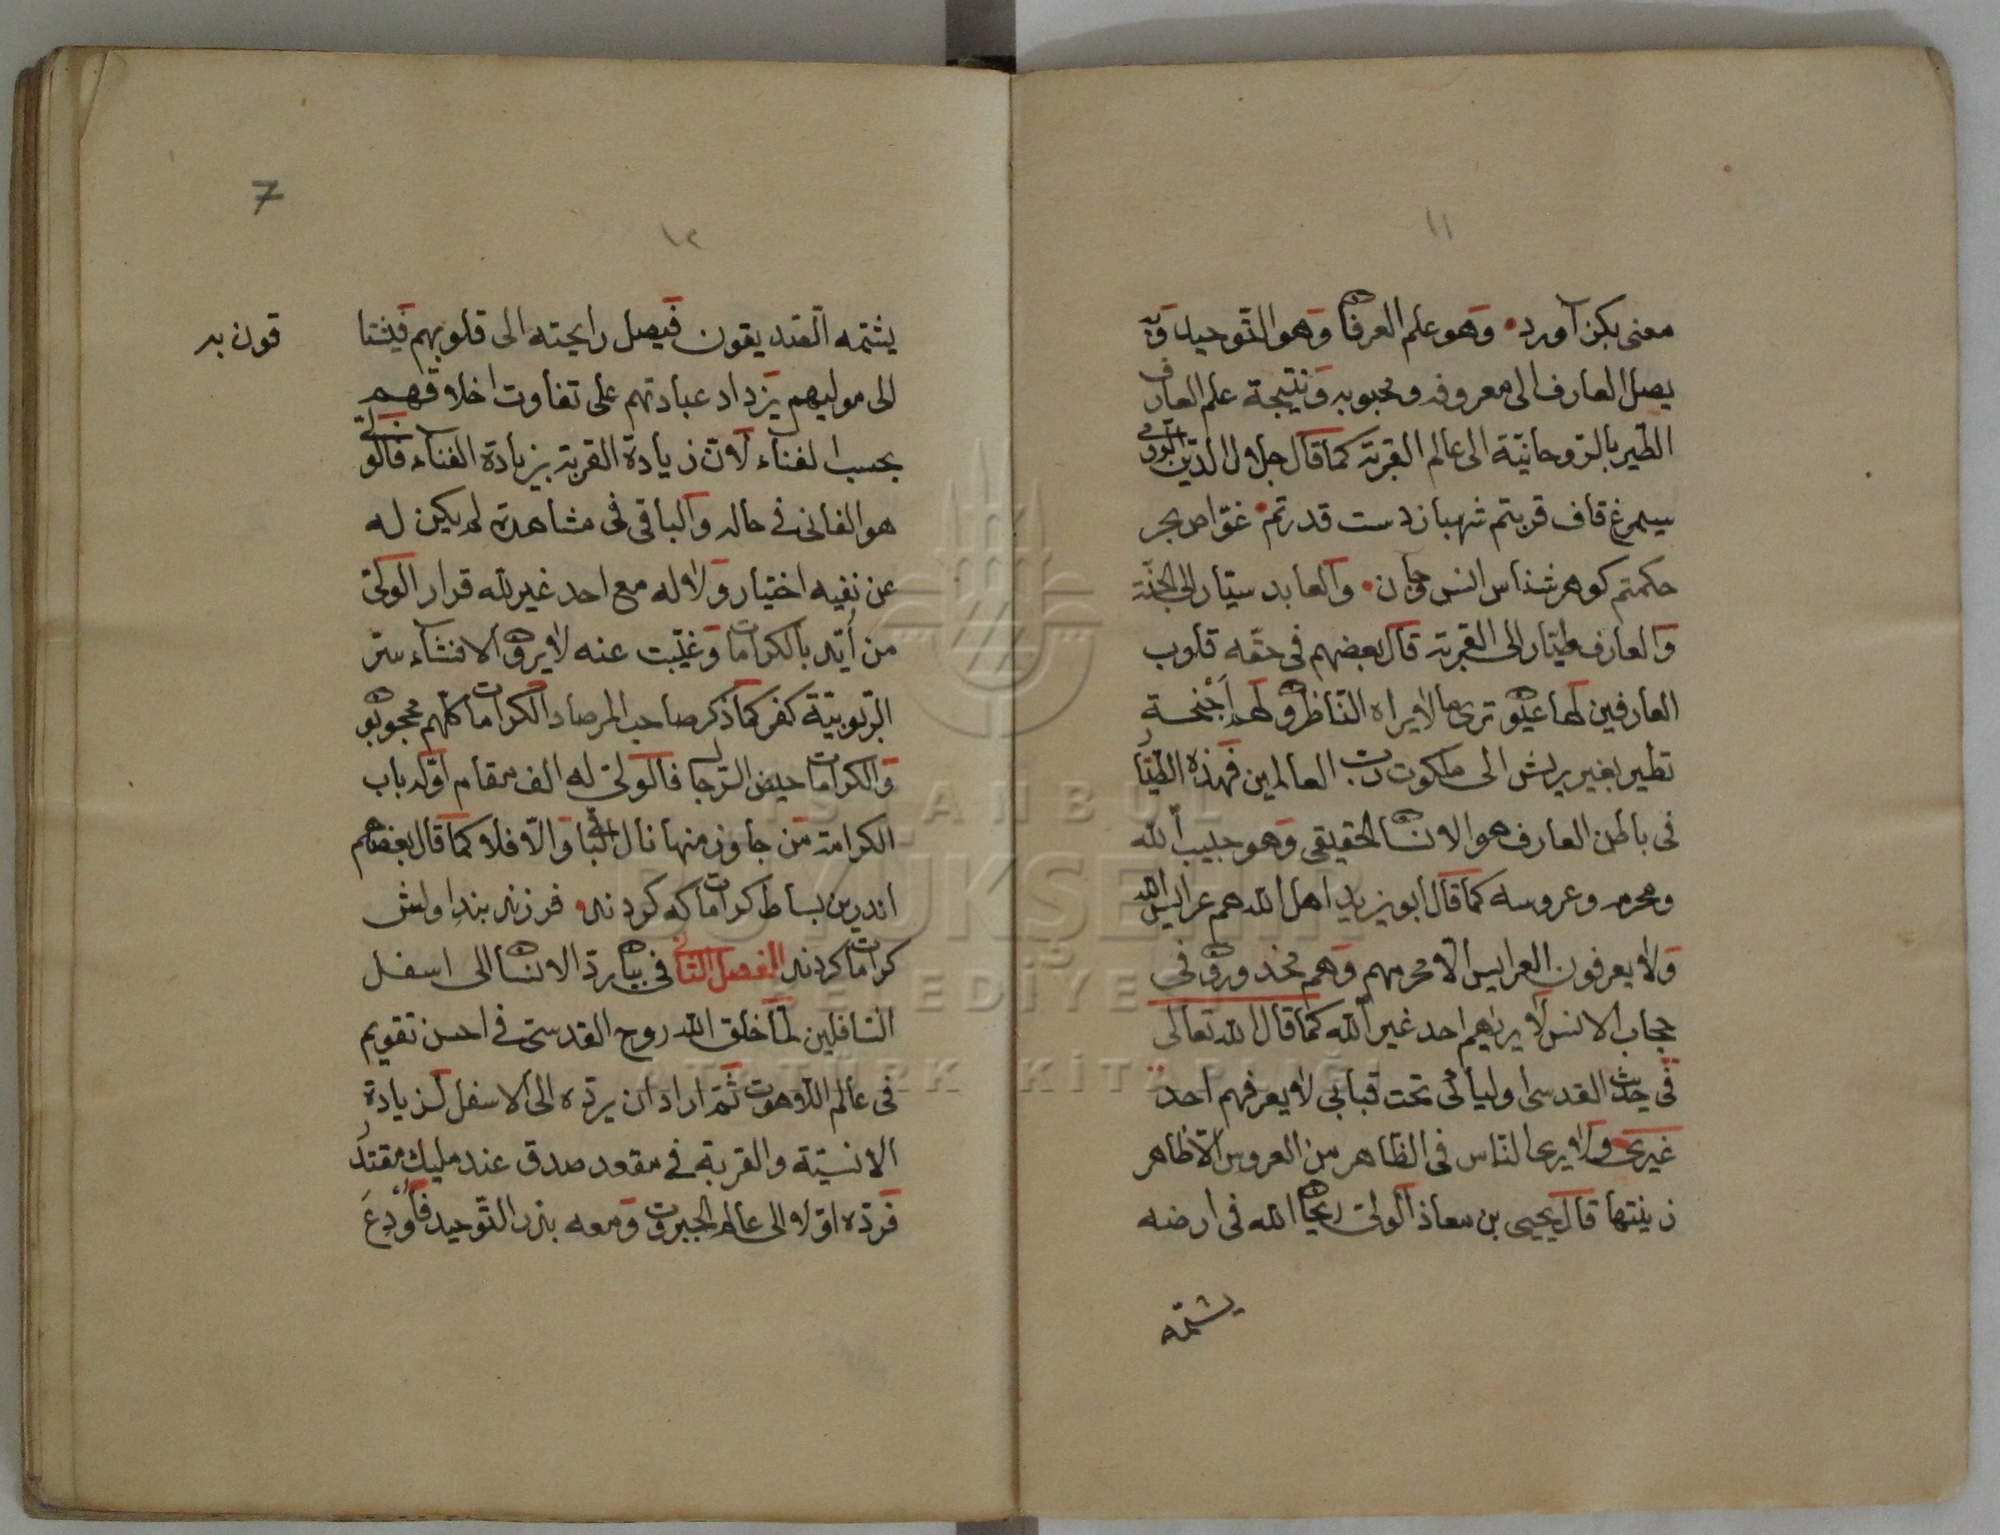 ١١
معنى بكن آورد وهو علم العرفان وهو التّوحيد وبه
يصل العارف الى معروفه ومحبوبه ونتيجة علم العارف
الطّير بالرّوحانيّة الى عالم القربة كما قال جلال الدّين الرّومى
سيمرغ قاف قربتم شهباز دست قدرتم غوّاص بحر
حكمتم كوهر شناس انس وجان والعابد سيّار الى الجنّة
والعارف طيّار الى القربة قال بعضهم فى حقّه قلوب
العارفين لها عيون ترى ما لا يراه النّاظرون لها اَجْنحة
تطير بغير ريش الى ملكوت ربّ العالمين فهذه الطّيّار
فى باطن العارف هو الانسان الحقيقى وهو حبيب اللّه
ومحرمه وعروسه كما قال ابو يزيد اهل اللّه هم عرايس اللّه
ولا يعرفون العرايس الّا محرمهم وهم مخدورون فى
حجاب الانس لا يريٰهم احد غير اللّه كما قال اللّه تعالى
فى حديث القدسى اوليائى تحت قبابى لا يعرفهم احد
غيرى ولا يرى النّاس فى الظّاهر من العروس الّا ظاهر
زينتها قال يحيى بن معاذ الولىّ ريحان اللّه فى ارضه
يشتمّه
٧
١٢
يشتمه الصّديقون فيصل رايحته الى قلوبهم فيشتا
قون به
الى موليهم يزداد عبادتهم على تفاوت اخلاقهم
بحسب الفناء لانّ زيادة القربة بزيادة الفناء فالولىّ
هو الفانى فى حاله والباقى فى مشاهدة لم يكن له
عن نفسه اختيار ولا له مع احد غير للّه قرار الولىّ
من أيّد بالكرامات وغيّبت عنه لا يرون الافشاء سرّ
الرّبوبيّة كفر كما ذكر صاحب المرصاد الكرامات كلّهم محجوبون
والكرامات حيض الرّجال فالولىّ له الف مقام اوّله باب
الكرامة من جاوز منها نال الباقى والّا فلا كما قال بعضهم
اندرين بساط كرامات كه كردند فرزند بند اولش
كرامات كردند الفصل الثّانى فى بيان ردّ الانسان الى اسفل
السّافلين لمّا خلق اللّه روح القدسىّ فى احسن تقويم
فى عالم اللّاهوت ثمّ اراد ان يردّه الى الاسفل لزيادة
الانسيّة والقربة فى مقعد صدق عند مليك مقتدر
فردّه اوّلا الى عالم الجبروت ومعه بذر التّوحيد فاُوْدِعَ